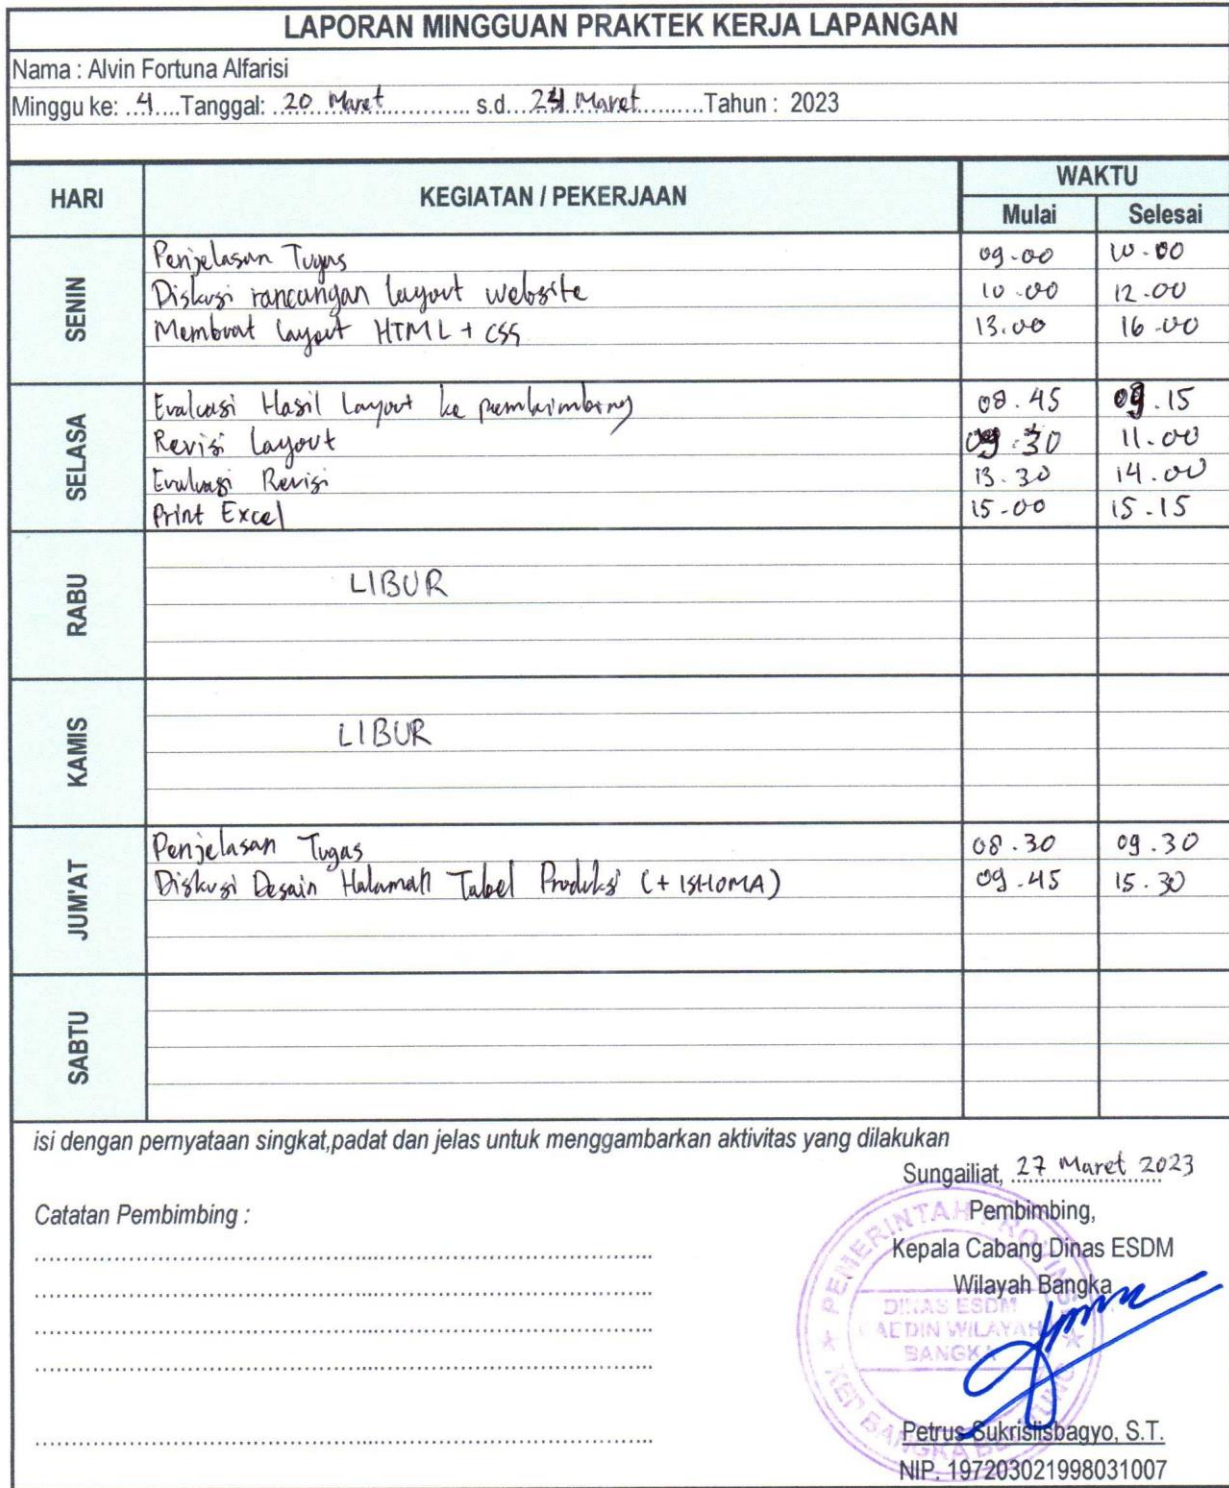 LAPORAN MINGGUAN PRAKTEK KERJA LAPANGAN
Nama : Alvin Fortuna Alfarisi
Minggu ke: 4 Tanggal: 20 Maret s.d. 24 Maret Tahun : 2023
HARI KEGIATAN / PEKERJAAN WAKTU
Mulai Selesai
SENIN
Penjelasan Tugas 09.00 10.00
Diskusi rancangan layout website 10.00 12.00
Membuat layout HTML + CSS 13.00 16.00
SELASA
Evaluasi Hasil Layout ke pembimbing 08.45 09.15
Revisi Layout 09.30 11.00
Evaluasi Revisi 13.30 14.00
Print Excel 15.00 15.15
RABU
LIBUR
KAMIS
LIBUR
JUM'AT
Penjelasan Tugas 08.30 09.30
Diskusi Desain Halaman Tabel Produksi (+ ISHOMA) 09.45 15.30
SABTU
isi dengan pernyataan singkat,padat dan jelas untuk menggambarkan aktivitas yang dilakukan
Sungailiat, 27 Maret 2023
Catatan Pembimbing :
Pembimbing,
Kepala Cabang Dinas ESDM
Wilayah Bangka
PEMERINTAH PROVINSI
DINAS ESDM
WILAYAH
BANGKA
KEP BANGKA BELITUNG
Petrus Sukrislisbagyo, S.T.
NIP. 197203021998031007